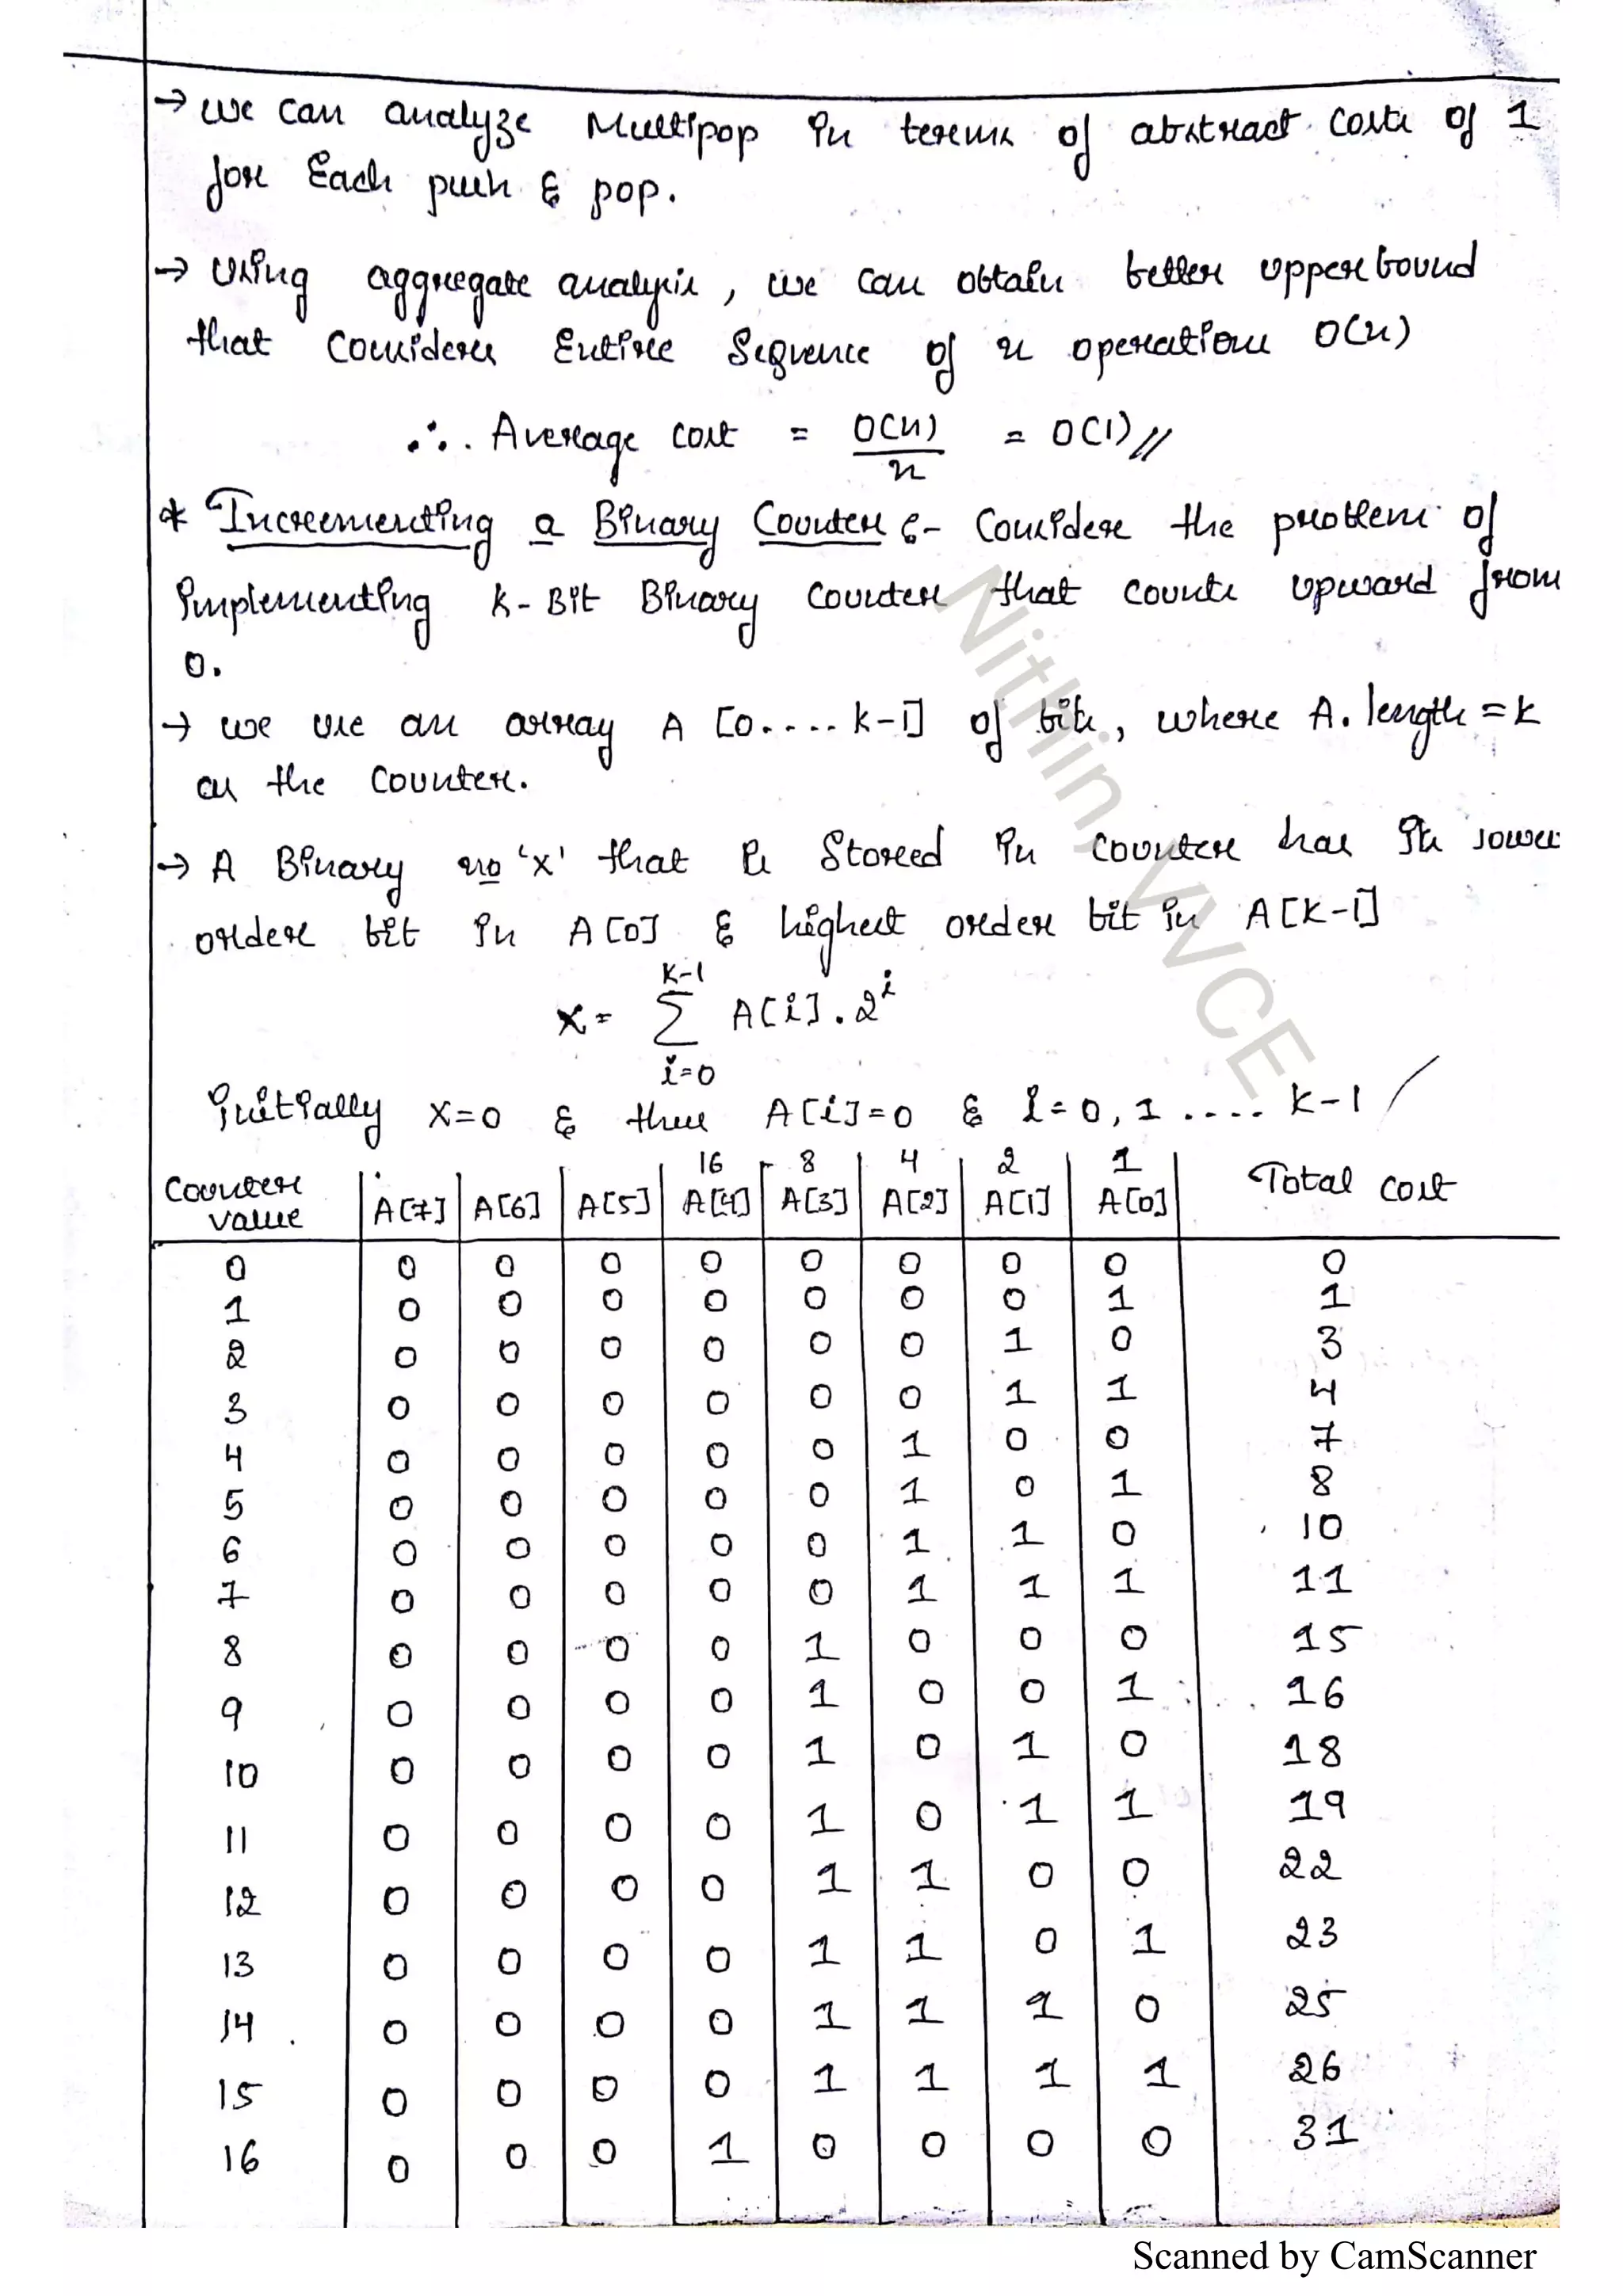 → we can analyze Multipop in terms of abstract costs of 1
for Each push & pop.
→ Using aggregate analysis, we can obtain better upperbound
that Considers Entire Sequence of n operations O(n)
∴ Average cost = O(n)/n = O(1)//
* Incrementing a Binary Counter :- Consider the problem of
implementing k-Bit Binary counter that counts upward from
0.
→ we use an array A [0.... k-1] of bits, where A. length = k
as the Counter.
→ A Binary no 'x' that is Stored in counter has its lower
order bit in A[0] & highest order bit in A[K-1]
x = K-1 ∑ i=0 A[i] . 2^i
initially x=0 & thus A[i]=0 & i=0, 1 .... k-1
16 8 4 2 1
Counter value A[7] A[6] A[5] A[4] A[3] A[2] A[1] A[0] Total cost
0 0 0 0 0 0 0 0 0 0
1 0 0 0 0 0 0 0 1 1
2 0 0 0 0 0 0 1 0 3
3 0 0 0 0 0 0 1 1 4
4 0 0 0 0 0 1 0 0 7
5 0 0 0 0 0 1 0 1 8
6 0 0 0 0 0 1 1 0 10
7 0 0 0 0 0 1 1 1 11
8 0 0 0 0 1 0 0 0 15
9 0 0 0 0 1 0 0 1 16
10 0 0 0 0 1 0 1 0 18
11 0 0 0 0 1 0 1 1 19
12 0 0 0 0 1 1 0 0 22
13 0 0 0 0 1 1 0 1 23
14 0 0 0 0 1 1 1 0 25
15 0 0 0 0 1 1 1 1 26
16 0 0 0 1 0 0 0 0 31
Nithin, VVCE
Scanned by CamScanner